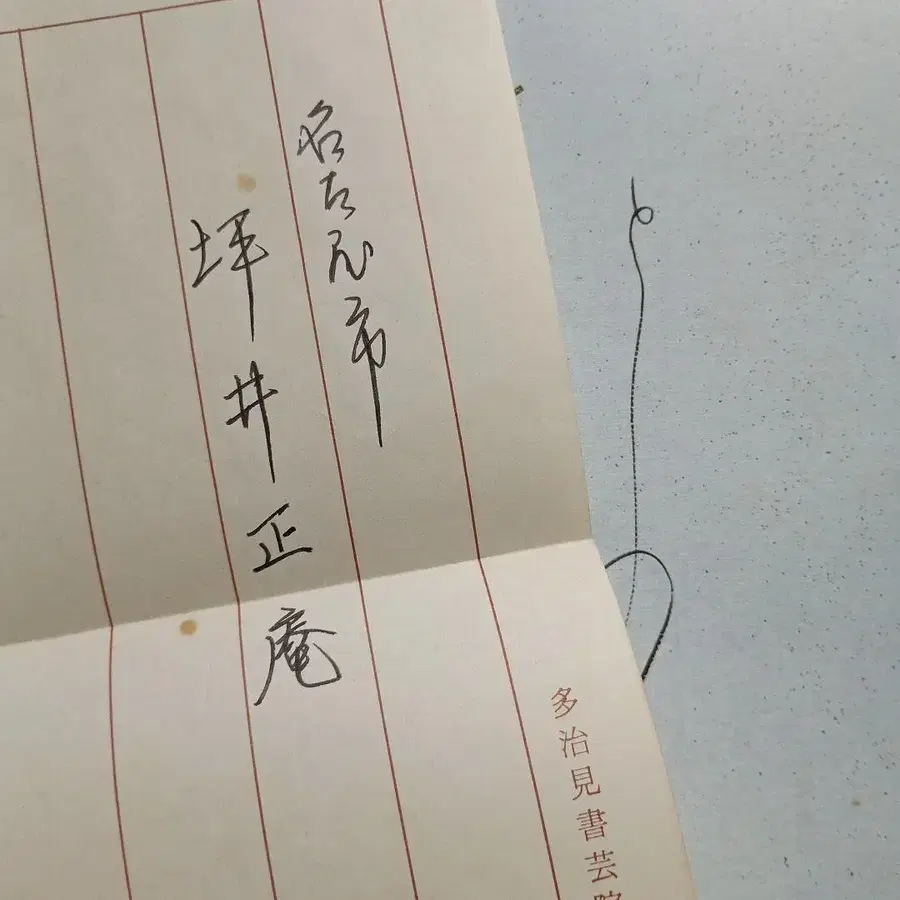 多治見書芸院
名古屋市
坪井正庵